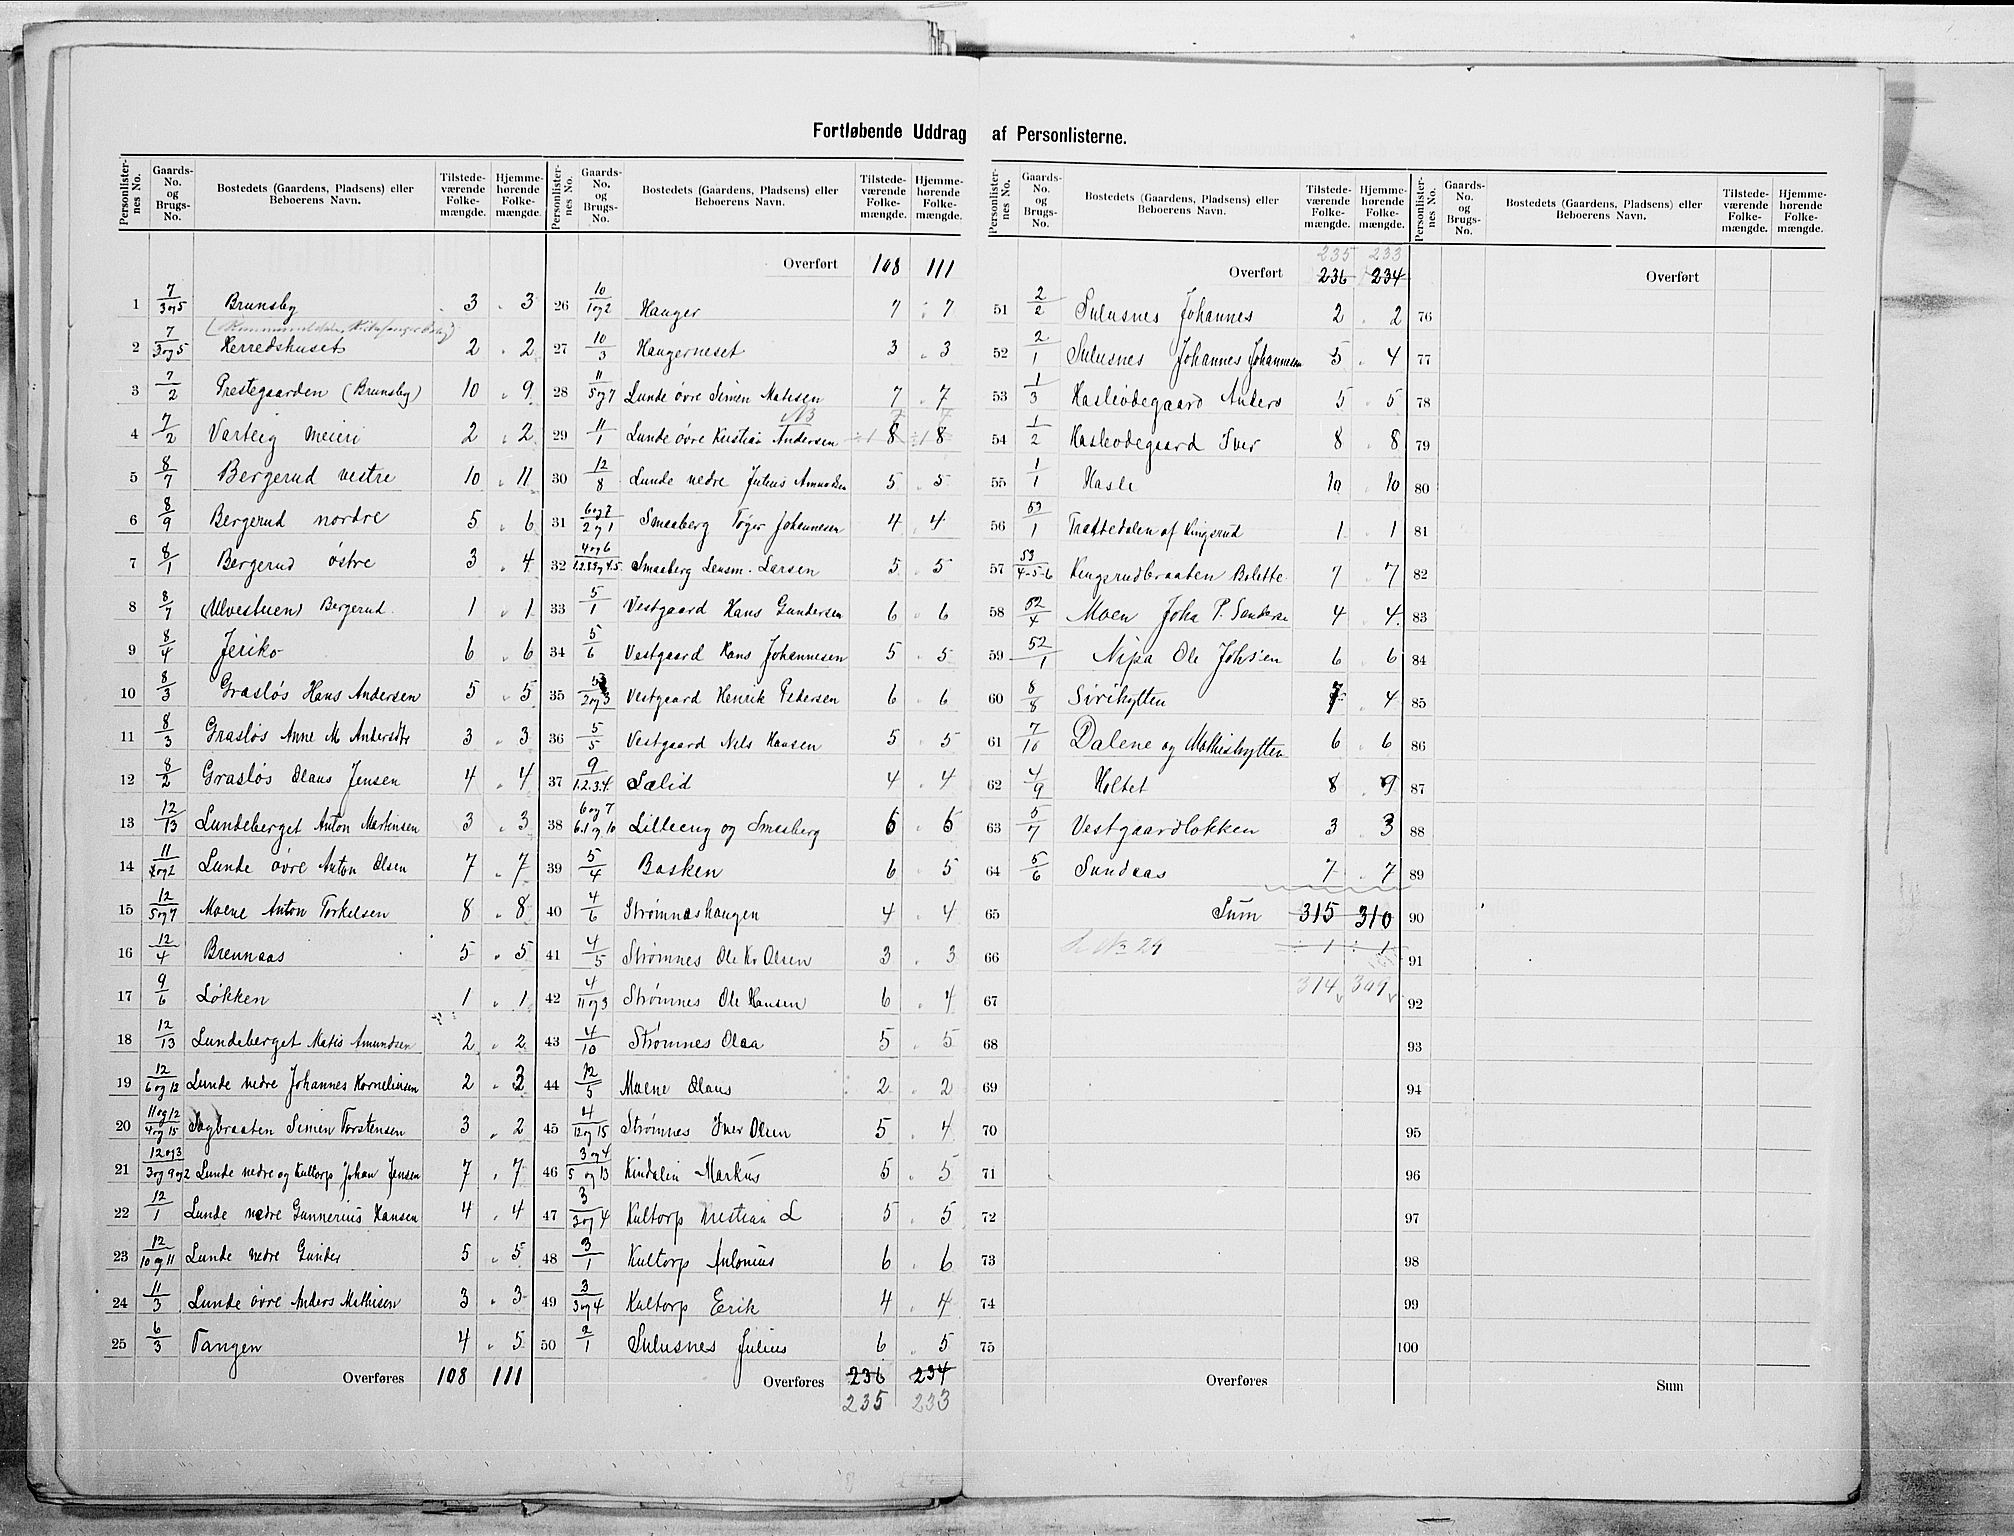 Fortløbende Uddrag af Personlisterne.
Personlister-nes No. | Gaards-No. og Brugs-No. | Bostedets (Gaardens, Pladsens) eller Beboerens Navn. | Tilstede-værende Folke-mængde. | Hjemme-hørende Folke-mængde.
1 7/3og5 Brunsby 3 3
2 7/3og5 Herredshuset 2 2
3 7/2 Prestegaarden (Brunsby) 10 9
4 7/2 Varteig Meieri 2 2
5 8/7 Bergerud vestre 10 11
6 8/9 Bergerud nordre 5 6
7 8/1 Bergerud østre 3 4
8 8/7 (Ulvestuen) Bergerud 1 1
9 8/4 Jeriko 6 6
10 8/3 Grasløs Hans Andersen 5 5
11 8/3 Grasløs Anne M Andersdtr 3 3
12 8/2 Grasløs Olaus Jensen 4 4
13 12/13 Lundeberget Anton Martinsen 3 3
14 11/2 Lunde øvre Anton Olsen 7 7
15 12/5og7 Moene Anton Torkelsen 8 8
16 12/4 Brennaas 5 5
17 9/6 Løkken 1 1
18 12/13 Lundeberget Matis Amundsen 2 2
19 12/6og12 Lunde nedre Johannes Kornelinsen 2 2
20 11og12/4og15 Sagbraaten Simen Torstensen 3 2
21 12og3/3og9og2 Lunde nedre og Kultorp Johan Jensen 7 7
22 12/1 Lunde nedre Gunnerius Hansen 4 4
23 12/10og11 Lunde nedre Gunder 5 5
24 11/3 Lunde øvre Anders Mathisen 3 3
25 6/3 Tangen 4 5
Overføres 108 111
Personlister-nes No. | Gaards-No. og Brugs-No. | Bostedets (Gaardens, Pladsens) eller Beboerens Navn. | Tilstede-værende Folke-mængde. | Hjemme-hørende Folke-mængde.
Overført 108 111
26 10/1og2 Hauger 7 7
27 10/3 Haugerneset 3 3
28 11/5og7 Lunde øvre Simen Matisen 7 7
29 11/1 Lunde øvre Kristian Andersen 8 8
30 12/8 Lunde nedre Julius Amundsen 5 5
31 6og7/2og1 Smaaberg Tøger Johannesen 4 4
32 4og6/1.2.3og4.5 Smaaberg Lensm. Larsen 5 5
33 5/1 Vestgaard Hans Gundersen 6 6
34 5/6 Vestgaard Hans Johannesen 5 5
35 5/2og3 Vestgaard Henrik Pedersen 6 6
36 5/5 Vestgaard Nils Hansen 5 5
37 9/1.2.3.4 Sælid 4 4
38 6og7/6.1og10 Lilleeng og Smaaberg 6 6
39 5/4 Basken 6 5
40 4/6 Strømneshaugen 4 4
41 4/5 Strømnes Ole Kr Olsen 3 3
42 4/11og3 Strømnes Ole Hansen 6 4
43 4/10 Strømnes Olaa 5 5
44 12/5 Moene Olaus 2 2
45 4/12og15 Strømnes Iver Olsen 5 4
46 3og4/5 og13 Kindalen Markus 5 5
47 3/3og4 Kultorp Kristian L 5 5
48 3/1 Kultorp Antonius 6 6
49 3/3og4 Kultorp Erik 4 4
50 2/1 Sulusnes Julius 6 5
Overføres 236 234
235 233
Personlister-nes No. | Gaards-No. og Brugs-No. | Bostedets (Gaardens, Pladsens) eller Beboerens Navn. | Tilstede-værende Folke-mængde. | Hjemme-hørende Folke-mængde.
235 233
Overført 236 234
51 2/2 Sulusnes Johannes 2 2
52 2/1 Sulusnes Johannes Johannesen 5 4
53 1/3 Hasleødegaard Anders 5 5
54 1/2 Hasleødegaard Iver 8 8
55 1/1 Hasle 10 10
56 53/1 Trattedalen af Kingsrud 1 1
57 53/4-5-6 Kingsrudbraaten Bolette 7 7
58 52/4 Moen Joha P. 4 4
59 52/1 Nipa Ole Johsen 6 6
60 8/8 Sirihytten 7 4
61 7/10 Dalene og Mathishytten 6 6
62 4/9 Holtet 8 9
63 5/7 Vestgaardløkken 3 3
64 5/6 Sundaas 7 7
65 Sum 315 310
66 No 29 ÷ 1 ÷ 1
67 314 309
68
69
70
71
72
73
74
75
Overføres
Personlister-nes No. | Gaards-No. og Brugs-No. | Bostedets (Gaardens, Pladsens) eller Beboerens Navn. | Tilstede-værende Folke-mængde. | Hjemme-hørende Folke-mængde.
Overført
76
77
78
79
80
81
82
83
84
85
86
87
88
89
90
91
92
93
94
95
96
97
98
99
100
Sum